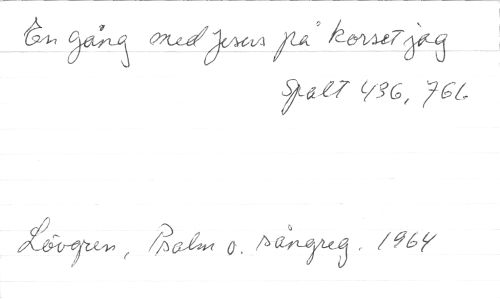 En gång med Jesus på korset jag
Spalt 436, 766
Lövgren, Psalm o. sångreg. 1964